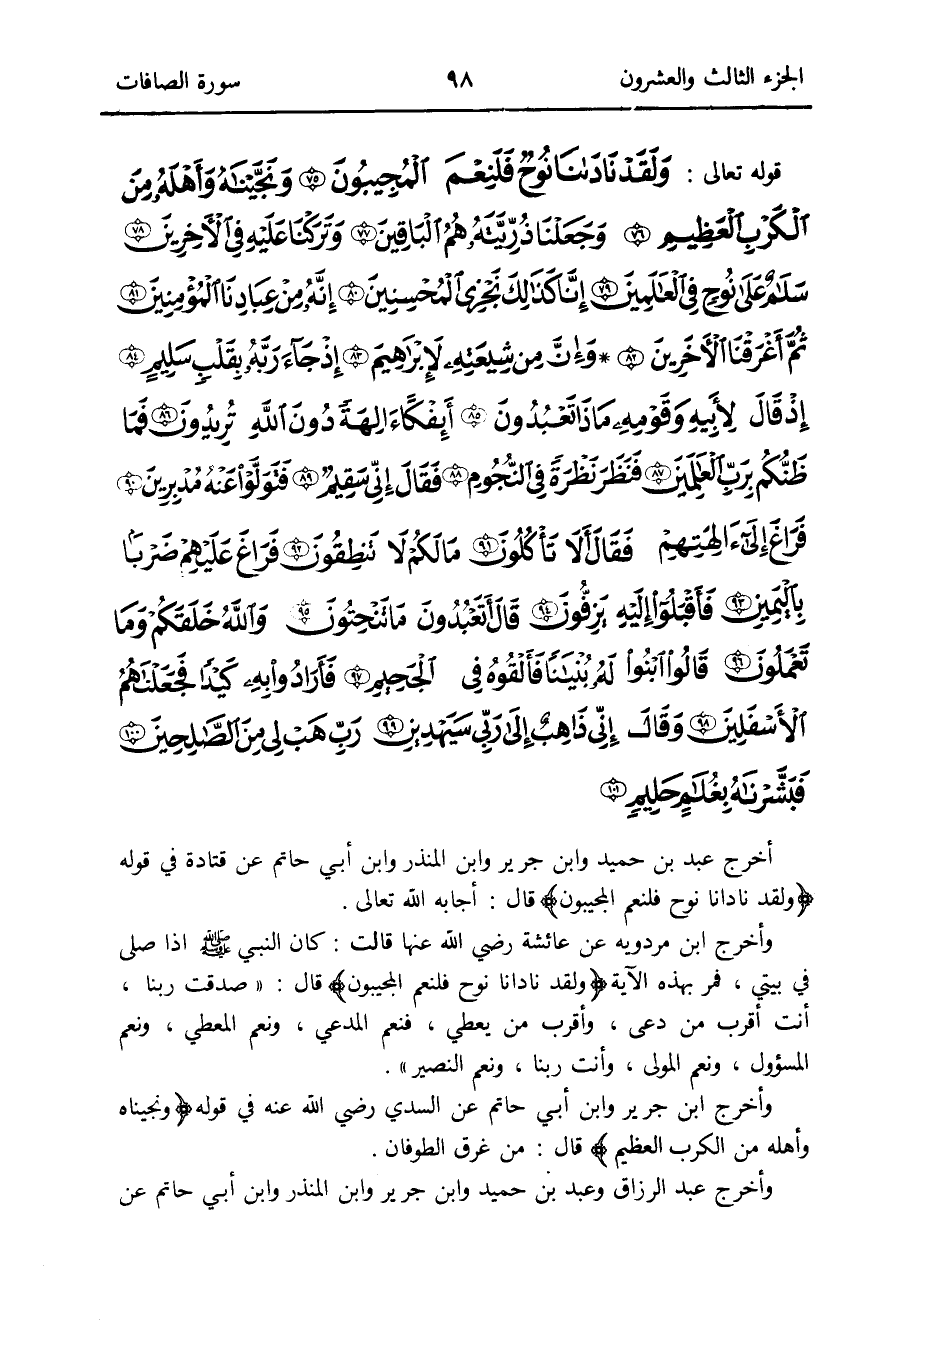 الجزء الثالث والعشرون ٩٨ سورة الصافات
قوله تعالى : وَلَقَدْ نَادَىٰنَا نُوحٌ فَلَنِعْمَ ٱلْمُجِيبُونَ ۝٧٥ وَنَجَّيْنَٰهُ وَأَهْلَهُۥ مِنَ
ٱلْكَرْبِ ٱلْعَظِيمِ ۝٧٦ وَجَعَلْنَا ذُرِّيَّتَهُۥ هُمُ ٱلْبَاقِينَ ۝٧٧ وَتَرَكْنَا عَلَيْهِ فِى ٱلْأَخِرِينَ ۝٧٨
سَلَٰمٌ عَلَىٰ نُوحٍ فِى ٱلْعَٰلَمِينَ ۝٧٩ إِنَّا كَذَٰلِكَ نَجْزِى ٱلْمُحْسِنِينَ ۝٨٠ إِنَّهُۥ مِنْ عِبَادِنَا ٱلْمُؤْمِنِينَ ۝٨١
ثُمَّ أَغْرَقْنَا ٱلْأَخَرِينَ ۝٨٢ * وَإِنَّ مِن شِيعَتِهِۦ لَإِبْرَٰهِيمَ ۝٨٣ إِذْ جَآءَ رَبَّهُۥ بِقَلْبٍ سَلِيمٍ ۝٨٤
إِذْ قَالَ لِأَبِيهِ وَقَوْمِهِۦ مَاذَا تَعْبُدُونَ ۝٨٥ أَئِفْكًا ءَالِهَةً دُونَ ٱللَّهِ تُرِيدُونَ ۝٨٦ فَمَا
ظَنُّكُم بِرَبِّ ٱلْعَٰلَمِينَ ۝٨٧ فَنَظَرَ نَظْرَةً فِى ٱلنُّجُومِ ۝٨٨ فَقَالَ إِنِّى سَقِيمٌ ۝٨٩ فَتَوَلَّوْا۟ عَنْهُ مُدْبِرِينَ ۝٩٠
فَرَاغَ إِلَىٰٓ ءَالِهَتِهِمْ فَقَالَ أَلَا تَأْكُلُونَ ۝٩١ مَا لَكُمْ لَا تَنطِقُونَ ۝٩٢ فَرَاغَ عَلَيْهِمْ ضَرْبًۢا
بِٱلْيَمِينِ ۝٩٣ فَأَقْبَلُوٓا۟ إِلَيْهِ يَزِفُّونَ ۝٩٤ قَالَ أَتَعْبُدُونَ مَا تَنْحِتُونَ ۝٩٥ وَٱللَّهُ خَلَقَكُمْ وَمَا
تَعْمَلُونَ ۝٩٦ قَالُوا۟ ٱبْنُوا۟ لَهُۥ بُنْيَٰنًا فَأَلْقُوهُ فِى ٱلْجَحِيمِ ۝٩٧ فَأَرَادُوا۟ بِهِۦ كَيْدًا فَجَعَلْنَٰهُمُ
ٱلْأَسْفَلِينَ ۝٩٨ وَقَالَ إِنِّى ذَاهِبٌ إِلَىٰ رَبِّى سَيَهْدِينِ ۝٩٩ رَبِّ هَبْ لِى مِنَ ٱلصَّٰلِحِينَ ۝١٠٠
فَبَشَّرْنَٰهُ بِغُلَٰمٍ حَلِيمٍ ۝١٠١
أخرج عبد بن حميد وابن جرير وابن المنذر وابن أبي حاتم عن قتادة في قوله
﴿ولقد نادانا نوح فلنعم المجيبون﴾ قال : أجابه الله تعالى .
وأخرج ابن مردويه عن عائشة رضي الله عنها قالت : كان النبي ﷺ اذا صلى
في بيتي ، فمر بهذه الآية ﴿ولقد نادانا نوح فلنعم المجيبون﴾ قال : « صدقت ربنا ،
أنت أقرب من دعى ، وأقرب من يعطي ، فنعم المدعي ، ونعم المعطي ، ونعم
المسؤول ، ونعم المولى ، وأنت ربنا ، ونعم النصير» .
وأخرج ابن جرير وابن أبي حاتم عن السدي رضي الله عنه في قوله ﴿ونجيناه
وأهله من الكرب العظيم ﴾ قال : من غرق الطوفان .
وأخرج عبد الرزاق وعبد بن حميد وابن جرير وابن المنذر وابن أبي حاتم عن